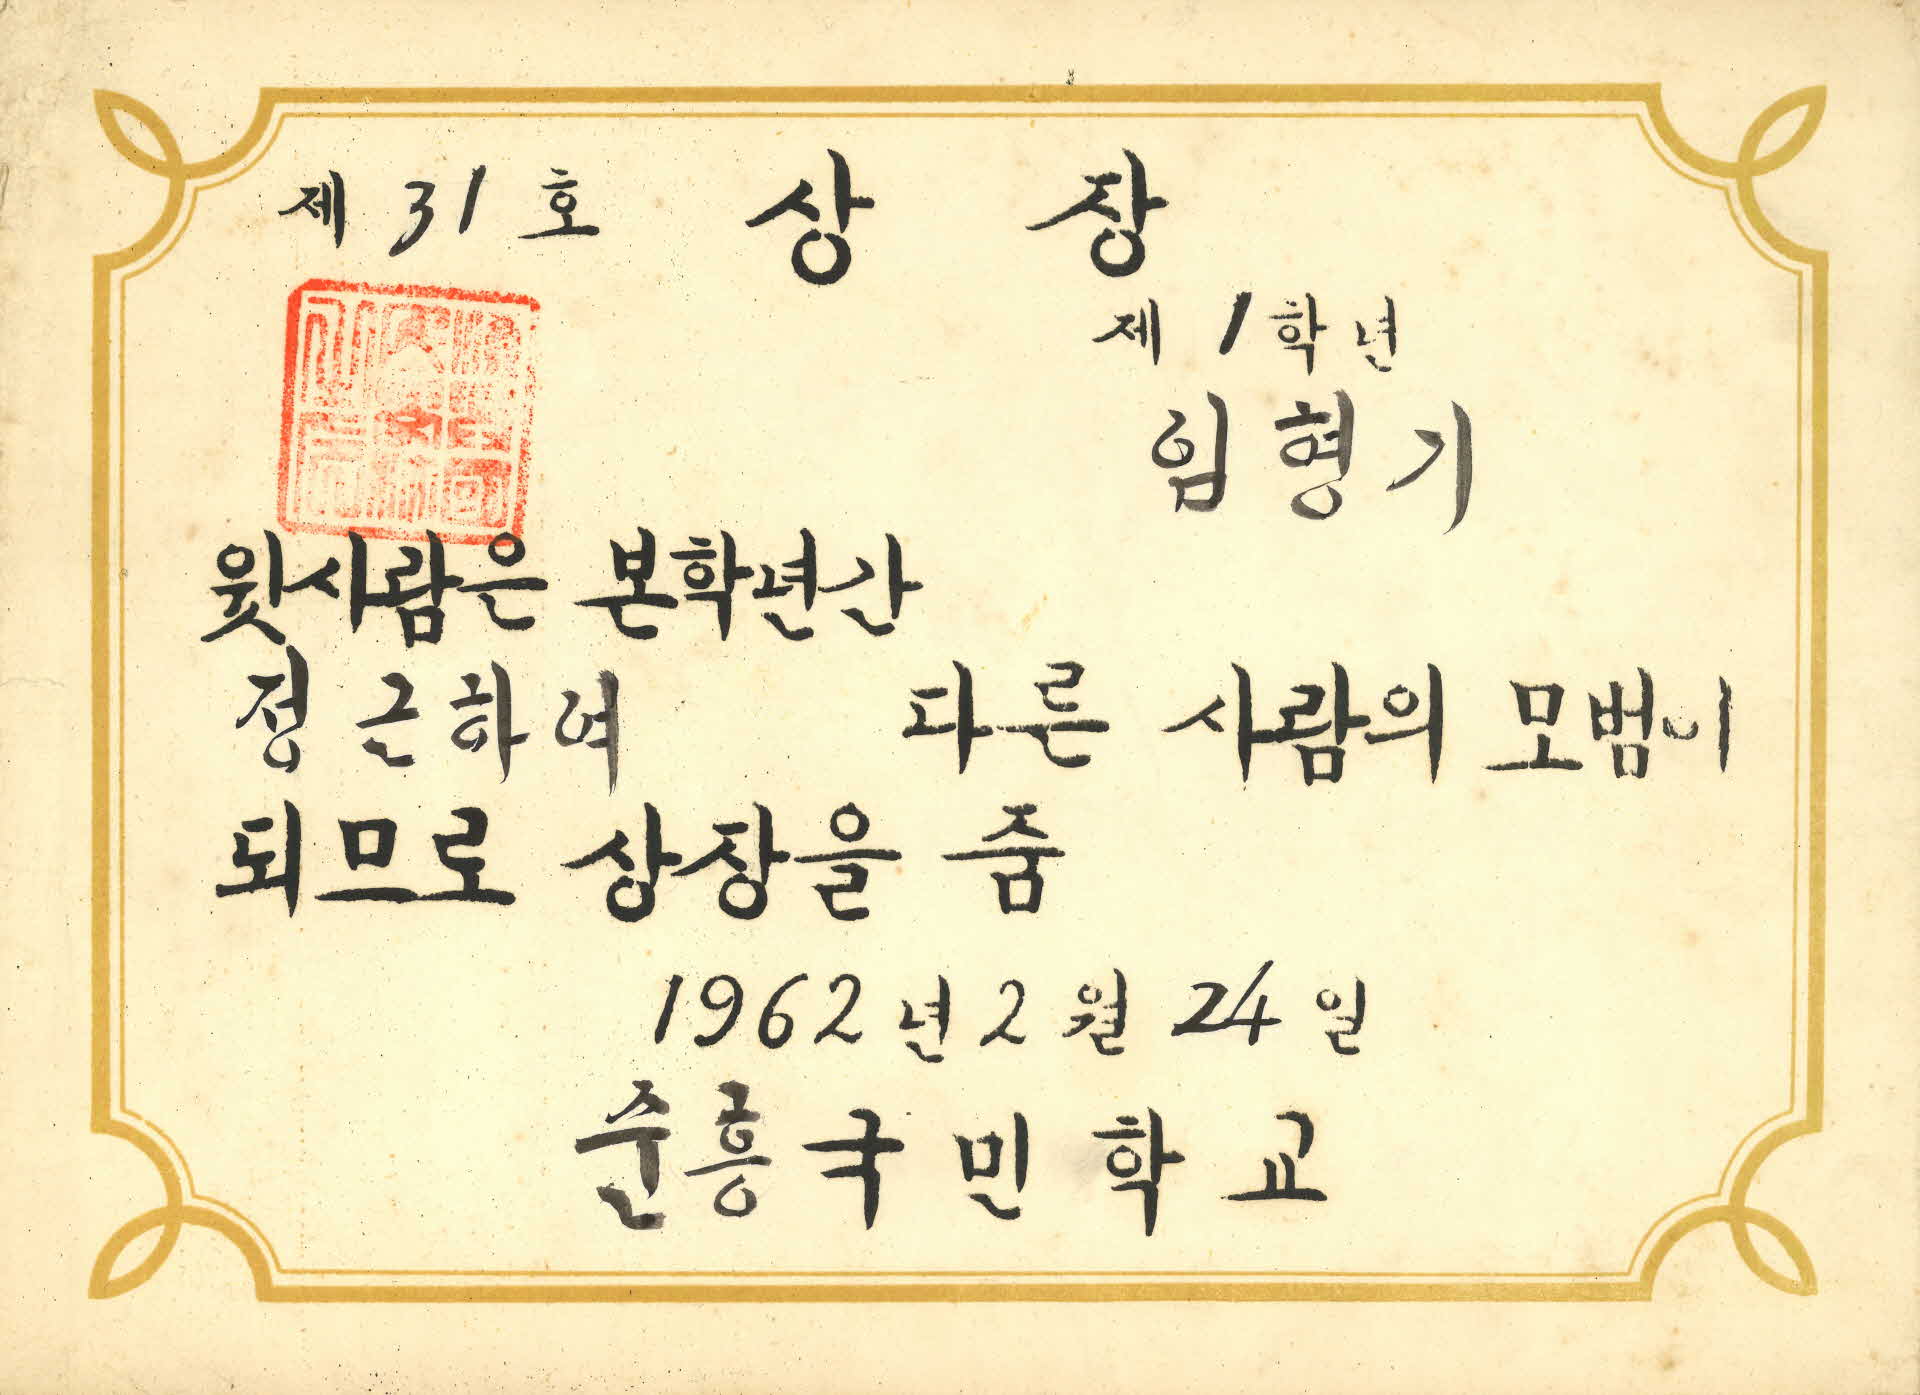 제 31 호 상 장
제 1 학년
임형기
윗사람은 본학년간
정근하여 다른 사람의 모범이
되므로 상장을 줌
1962년 2월 24일
준흥국민학교